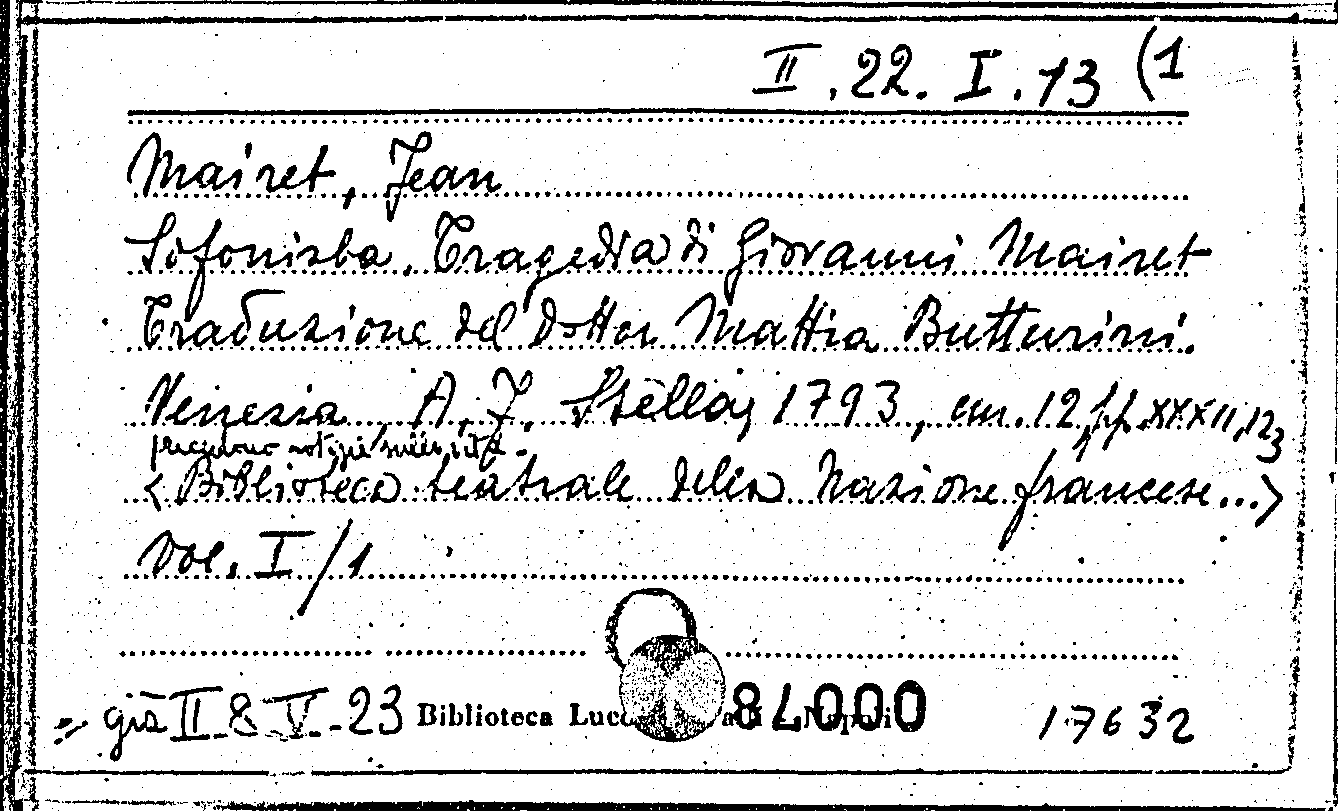 II. 22. I. 13 (1
Mairet, Jean
Sofonisba. Tragedia di Giovanni Mairet
Traduzione del Dottor Mattia Butturini.
Venezia, A. F. Stella, 1793, cm. 12, pp. XXXII, 123
precedono notizie sulla vita.
<Biblioteca teatrale della Nazione francese...>
Vol. I/1
= già II.8.V.23 Biblioteca Napoli 000078 17632